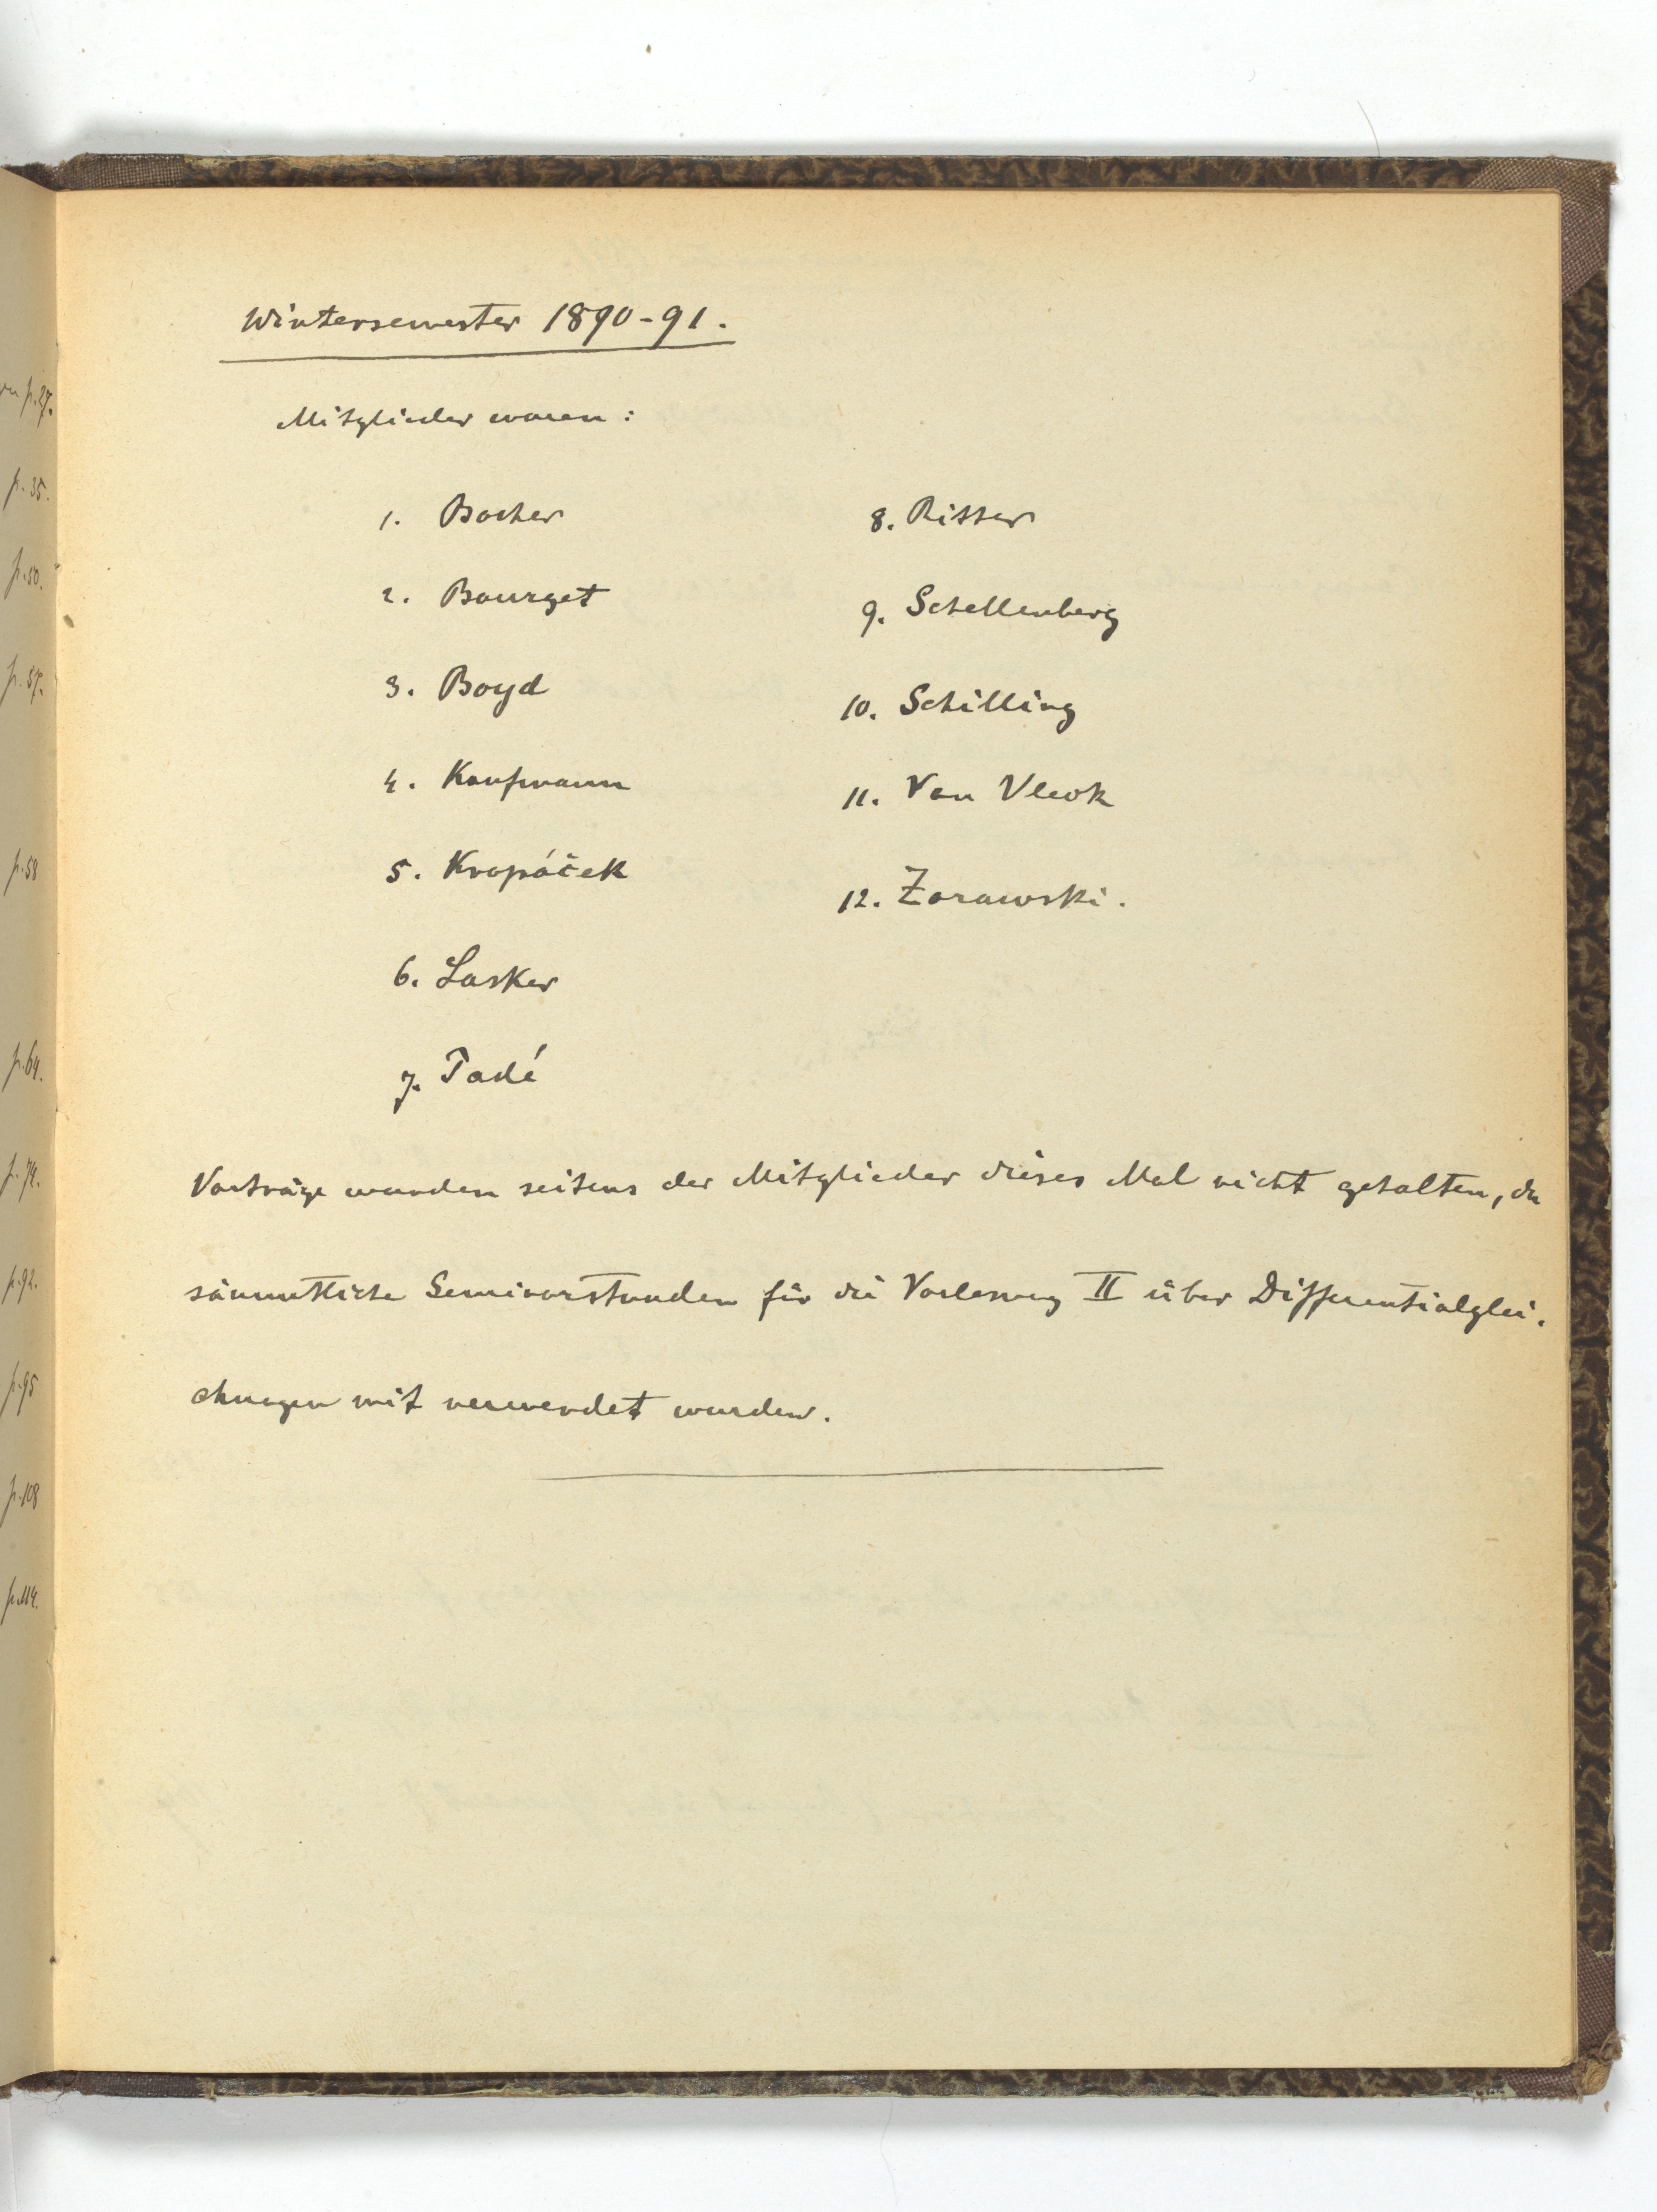 Wintersemester 1890-91.
Mitglieder waren:
1. Bocher
2. Bourget
3. Boyd
4. Kaufmann
5. Kropáček
6. Lasker
7. Padé
8. Ritter
9. Schellenberg
10. Schilling
11. Van Vleck
12. Zorawski.
Vorträge wurden seitens der Mitglieder dieses Mal nicht gehalten, da
sämmtliche Seminarstunden für die Vorlesung II über Differentialglei-
chungen mit verwendet wurden.
p.27.
p.35.
p.50.
p.57.
p.58
p.64.
p.74.
p.92.
p.95
p.108
p.114.